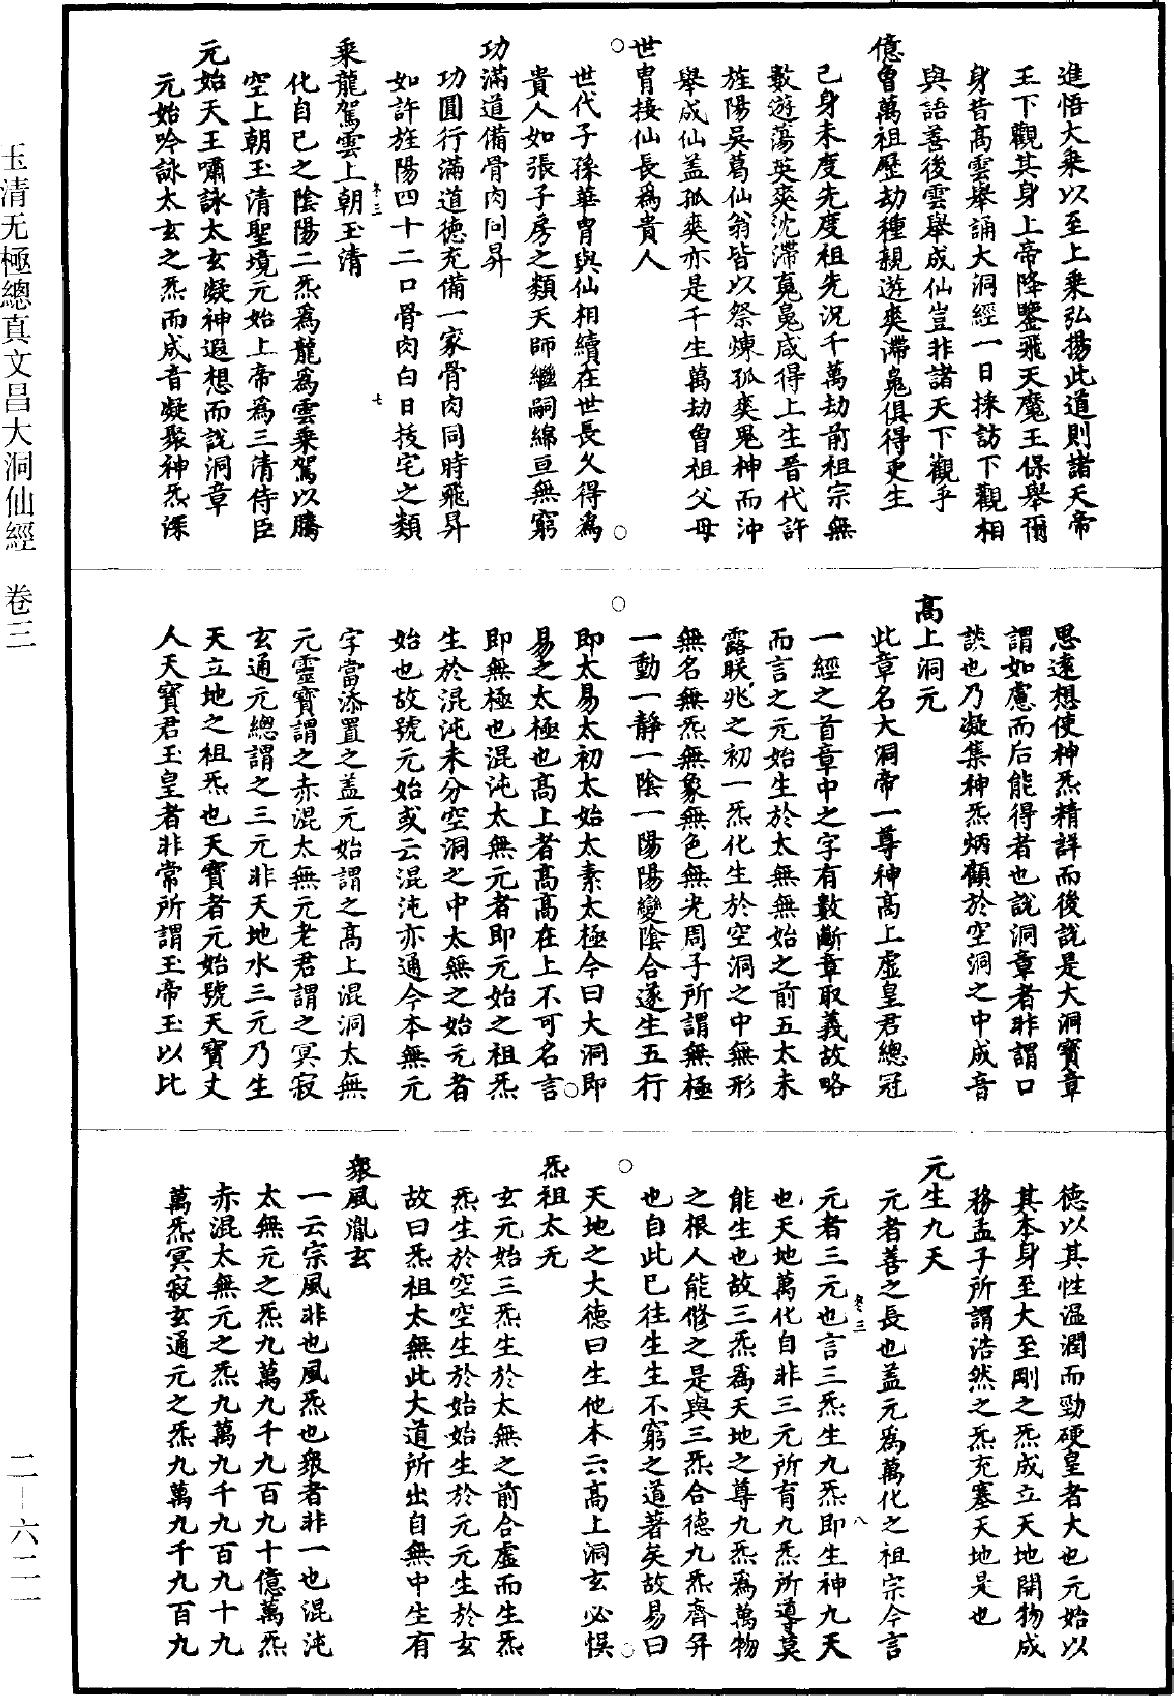 進悟大乘以至上乘弘揚此道則諸天帝
王下觀其身上帝降鑒飛天魔王保舉爾
身昔高雲舉誦大洞經一日採訪下觀相
與語善後雲舉成仙豈非諸天下觀乎
億曾萬祖歷劫種親遊爽滯䰟俱得更生
己身未度先度祖先況千萬劫前祖宗無
數遊蕩英爽沈滯䰟䰟咸得上生晉代許
旌陽吳葛仙翁皆以祭煉孤爽鬼神而沖
舉成仙盖孤爽亦是千生萬劫曾祖父母
世胄接仙長爲貴人
世代子孫華胄與仙相續在世長久得爲
貴人如張子房之類天師繼嗣綿亘無窮
功滿道備骨肉同昇
功圓行滿道德充備一家骨肉同時飛昇
如許旌陽四十二口骨肉白日拔宅之類
乘龍駕雲上朝玉清
化自己之陰陽二炁爲龍爲雲乘駕以騰
空上朝玉清聖境元始上帝爲三清侍臣
元始天王嘯詠太玄凝神遐想而說洞章
元始吟詠太玄之炁而成音凝聚神炁深
思遠想使神炁精詳而後說是大洞寶章
謂如慮而后能得者也說洞章者非謂口
談也乃凝集神炁炳顧於空洞之中成音
高上洞元
此章名大洞帝一尊神高上虛皇君總冠
一經之首章中之字有數斷章取義故略
而言之元始生於太無無始之前五太未
露朕兆之初一炁化生於空洞之中無形
無名無炁無象無色無光周子所謂無極
一動一靜一陰一陽陽變陰合遂生五行
即太易太初太始太素太極今曰大洞即
易之太極也高上者高高在上不可名言
即無極也混沌太無元者即元始之祖炁
生於混沌未分空洞之中太無之始元者
始也故號元始或云混沌亦通今本無元
字當添置之盖元始謂之高上混洞太無
元靈寶謂之赤混太無元老君謂之冥寂
玄通元總謂之三元非天地水三元乃生
天立地之祖炁也天寶者元始號天寶丈
人天寶君玉皇者非常所謂玉帝玉以比
德以其性溫潤而勁硬皇者大也元始以
其本身至大至剛之炁成立天地開物成
務孟子所謂浩然之炁充塞天地是也
元生九天
元者善之長也盖元爲萬化之祖宗今言
元者三元也言三炁生九炁即生神九天
也天地萬化自非三元所育九炁所導莫
能生也故三炁爲天地之尊九炁爲萬物
之根人能修之是與三炁合德九炁齊并
也自此已往生生不窮之道著矣故易曰
天地之大德曰生他本云高上洞玄必悞
炁祖太无
玄元始三炁生於太無之前合虛而生炁
炁生於空空生於始始生於元元生於玄
故曰炁祖太無此大道所出自無中生有
衆風胤玄
一云宗風非也風炁也衆者非一也混沌
太無元之炁九萬九千九百九十億萬炁
赤混太無元之炁九萬九千九百九十九
萬炁冥寂玄通元之炁九萬九千九百九
玉清无極總真文昌大洞仙經 卷三
二—六二一